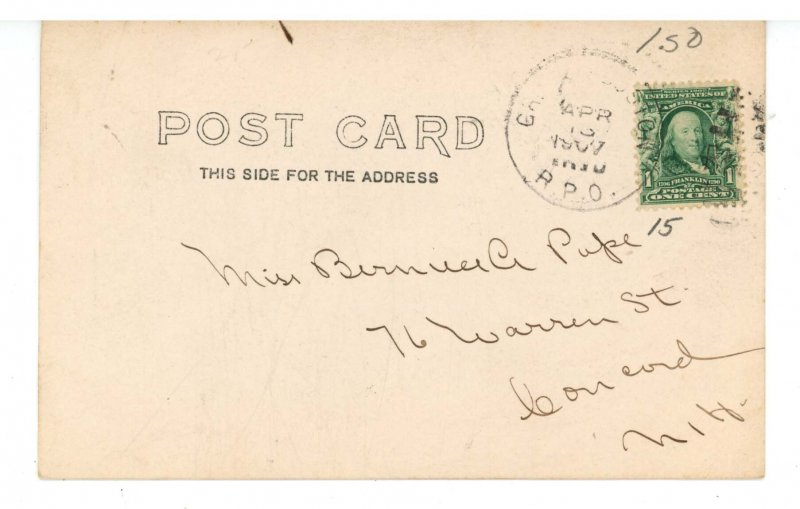 1.50
POST CARD
THIS SIDE FOR THE ADDRESS
APR
15
1907
R.P.O.
SERIES 1902
UNITED STATES OF
AMERICA
1 1
1706 FRANKLIN 1790
POSTAGE
ONE CENT
15
Miss Bernice A Pope
76 Warren St.
Concord
N.H.